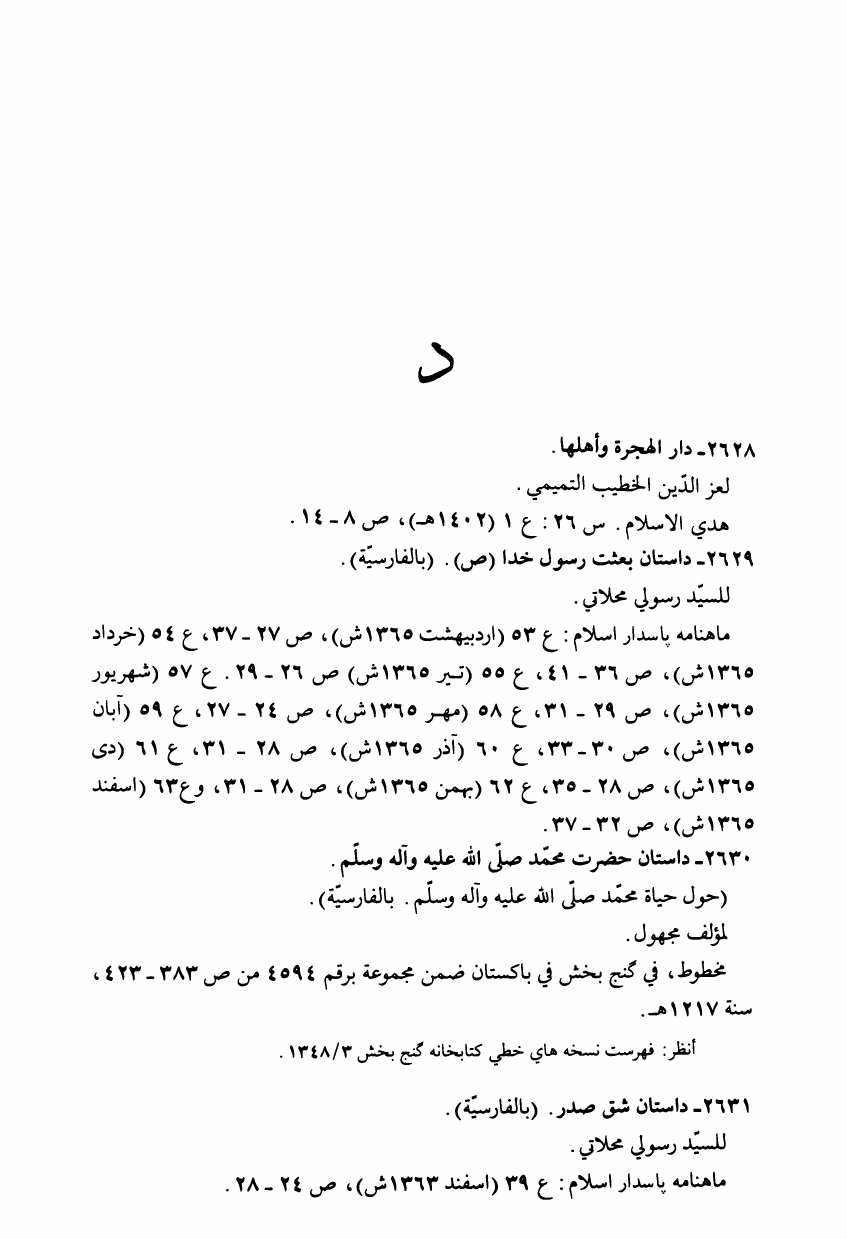 د
٢٦٢٨ـ دار الهجرة وأهلها.
لعز الدّين الخطيب التميمي.
هدي الاسلام. س ٢٦: ع ١ (١٤٠٢هـ)، ص ٨ - ١٤.
٢٦٢٩ـ داستان بعثت رسول خدا (ص). (بالفارسيّة).
للسيّد رسولي محلاتي.
ماهنامه پاسدار اسلام: ع ٥٣ (ارديبهشت ١٣٦٥ش)، ص ٢٧ - ٣٧، ع ٥٤ (خرداد
١٣٦٥ش)، ص ٣٦ - ٤١، ع ٥٥ (تير ١٣٦٥ش) ص ٢٦ - ٢٩. ع ٥٧ (شهريور
١٣٦٥ش)، ص ٢٩ - ٣١، ع ٥٨ (مهر ١٣٦٥ش)، ص ٢٤ - ٢٧، ع ٥٩ (آبان
١٣٦٥ش)، ص ٣٠ - ٣٣، ع ٦٠ (آذر ١٣٦٥ش)، ص ٢٨ - ٣١، ع ٦١ (دى
١٣٦٥ش)، ص ٢٨ - ٣٥، ع ٦٢ (بهمن ١٣٦٥ش)، ص ٢٨ - ٣١، وع٦٣ (اسفند
١٣٦٥ش)، ص ٣٢ - ٣٧.
٢٦٣٠ـ داستان حضرت محمّد صلّى الله عليه وآله وسلّم.
(حول حياة محمّد صلّى الله عليه وآله وسلّم. بالفارسيّة).
لمؤلف مجهول.
مخطوط، في گنج بخش في باكستان ضمن مجموعة برقم ٤٥٩٤ من ص ٣٨٣ - ٤٢٣،
سنة ١٢١٧هـ.
أنظر: فهرست نسخه هاي خطي كتابخانه گنج بخش ١٣٤٨/٣.
٢٦٣١ـ داستان شق صدر. (بالفارسيّة).
للسيّد رسولي محلاتي.
ماهنامه پاسدار اسلام: ع ٣٩ (اسفند ١٣٦٣ش)، ص ٢٤ - ٢٨.